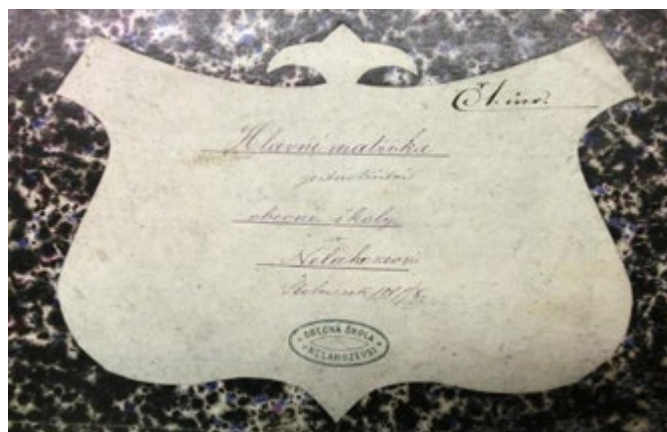 Č 1. inv.
Hlavní matrika
jednotřídní
obecné školy
v Nelahozevsi
Školní rok
OBECNÁ ŠKOLA
V NELAHOZEVSI